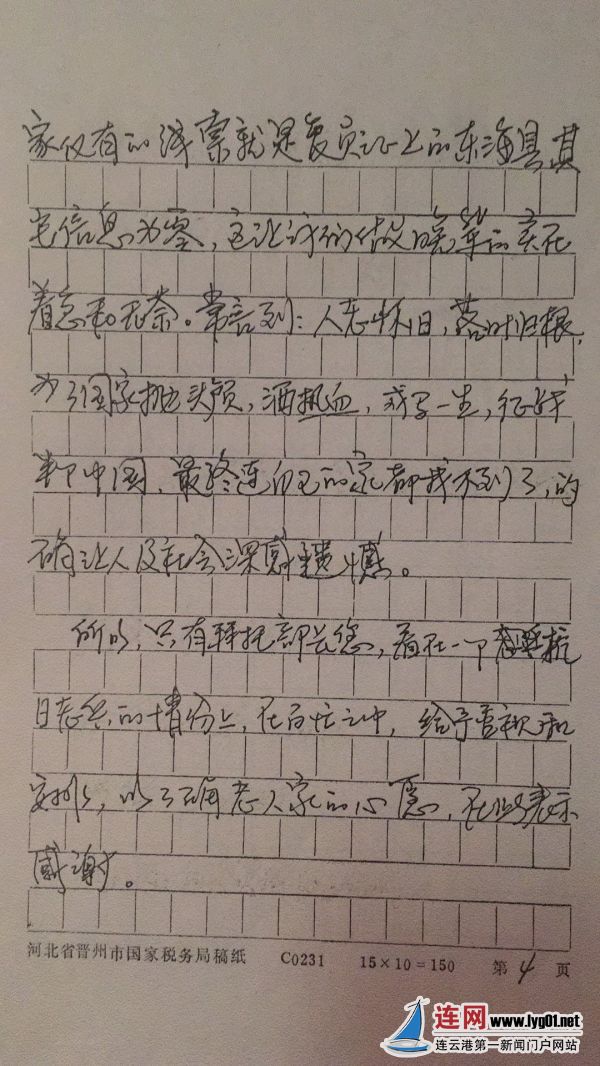 家仅有的线索就是复员证上的东海县其
它信息为零,这让我们做晚辈的实在
着急和无奈。常言到:人老怀旧,落叶归根,
为了国家抛头颅,洒热血,戎马一生,征战
半个中国,最终连自己的家都找不到了,的
确让人及社会深感遗憾。
所以,只有拜托部长您,看在一个老抗
日老兵的情份上,在百忙之中,给予重视和
安排,以了确老人家的心愿,在此表示
感谢。
河北省晋州市国家税务局稿纸 C0231 15×10=150 第 4 页
连网 www.lyg01.net
连云港第一新闻门户网站